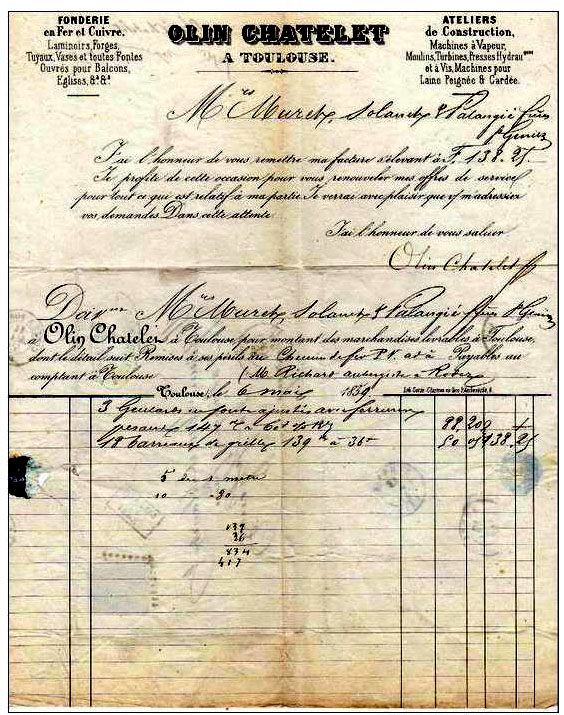 FONDERIE
en Fer et Cuivre.
Laminoirs, Forges,
Tuyaux, Vases et toutes Fontes
Ouvrés pour Balcons,
Eglises, &ª &ª
OLIN CHATELET
A TOULOUSE.
ATELIERS
de Construction,
Machines à Vapeur,
Moulins, Turbines, Presses Hydrau^ques
et à Vis, Machines pour
Laine Peignée & Cardée.
M^rs Muret, Solanet & Palangié frères
J'ai l'honneur de vous remettre ma facture s'élevant à F. 138.25
Je profite de cette occasion pour vous renouveler mes offres de service
pour tout ce qui est relatif à ma partie. Je verrai avec plaisir que v/ m'adressiez
vos demandes. Dans cette attente
J'ai l'honneur de vous saluer
Olin Chatelet
Doiv^ent M^rs Muret, Solanet & Palangié frères
à Olin Chatelet à Toulouse, pour montant des marchandises livrables à Toulouse,
dont le détail suit. Remises à ses périls du Chemin de fer Payables au
comptant à Toulouse M. Richard aubergiste à Rodez
Toulouse, le 6 mai 1859
3 Gueulards en fonte ajustés avec ferrures
pesant 147 K à 60 88,20
18 Barreaux de grille 139 K à 36 50 05 138.25
5 de 1 metre
10 90
139
36
834
417